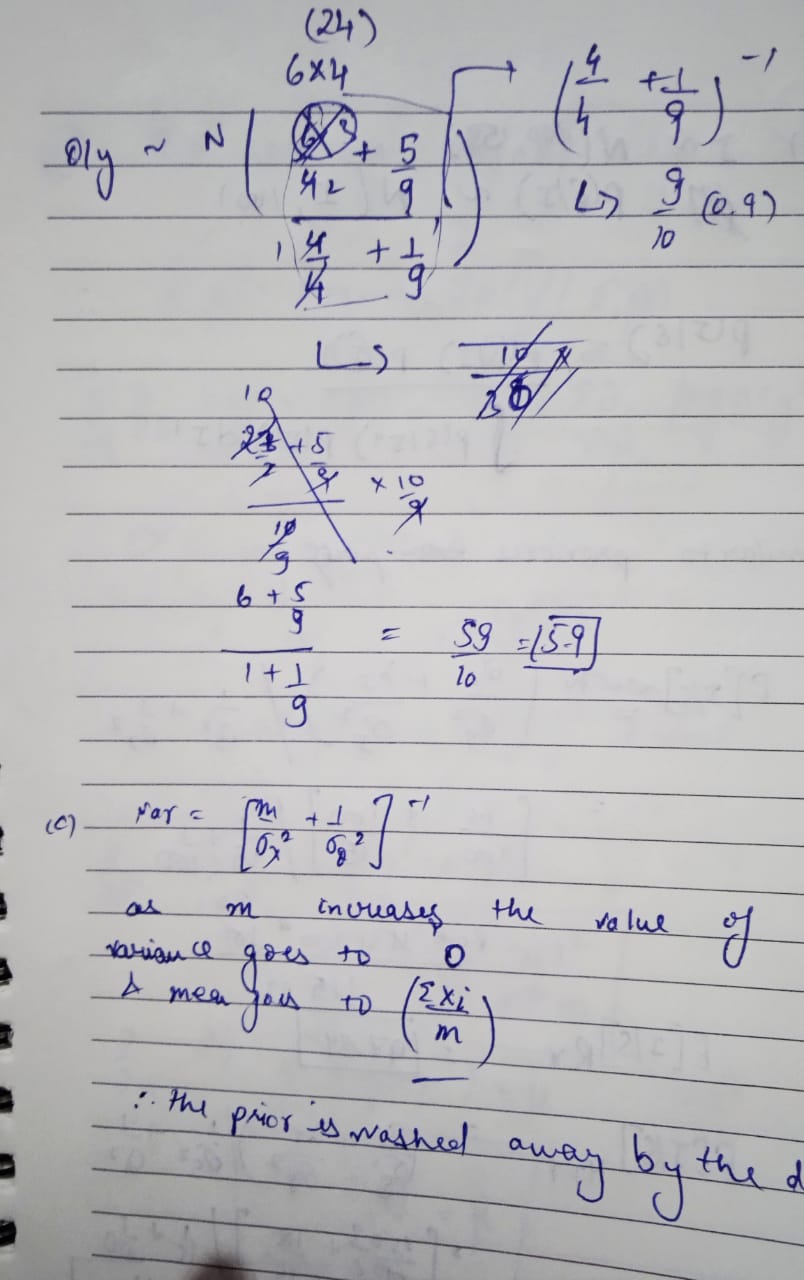 (24)
6x4
θ|y ~ N ( 6 + 5/9 / 4/4 + 1/9 ) → (4/4 + 1/9)^-1
↳ 9/10 (0.9)
↳
10
+ 5/9 x 10/9
10/9
6 + 5/9 / 1 + 1/9 = 59/10 = 5.9
(c) Var = [m/σx² + 1/σθ²]^-1
as m increases the value of
variance goes to 0
& mean goes to (Σxi/m)
∴ the prior is washed away by the d